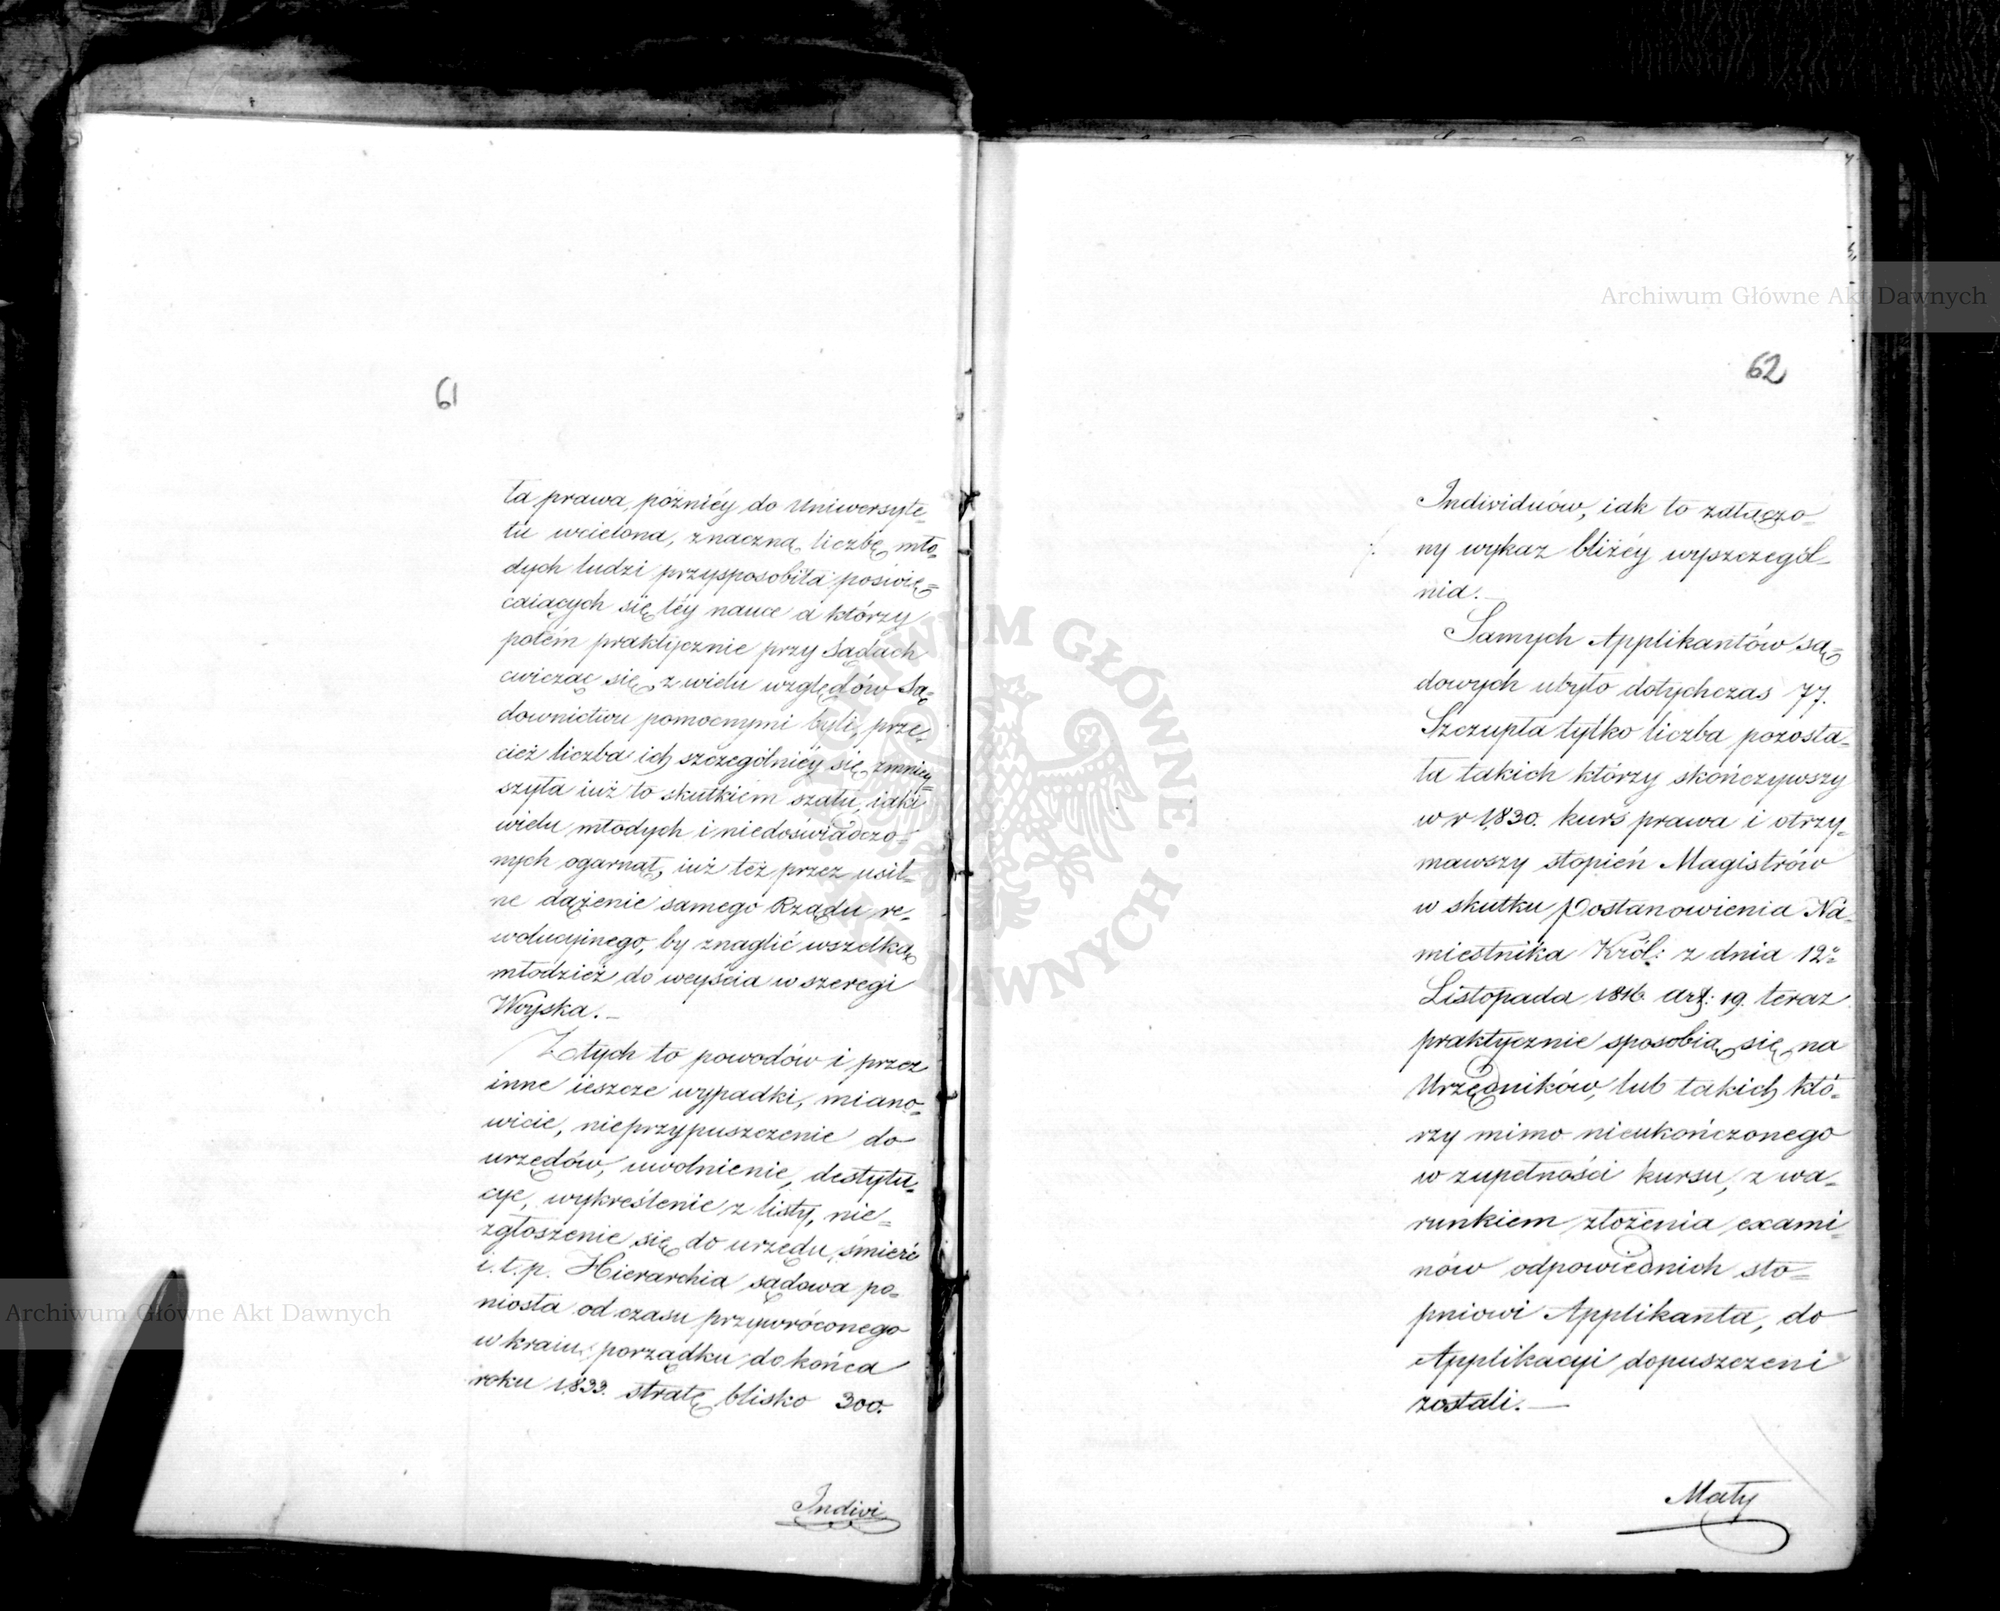 61
ta prawa, późniéy do Uniwersyte-
tu wcielona, znaczną liczbę mło-
dych ludzi przysposobiła poświę-
caiących się téy nauce a którzy
potém praktycznie przy Sądach
cwicząc się, z wielu względów Są-
downictwu pomocnymi byli, prze-
cież liczba ich szczególniéy się zmniey-
szyła iuż to skutkiem szału, iaki
wielu młodych i niedoświadczo-
nych ogarnął, iuż też przez usil-
ne dążenie samego Rządu re-
wolucyinego, by znaglić wszelką
młodzież do weyścia w szeregi
Woyska.
Z tych to powodów i przez
inne ieszcze wypadki, miano-
wicie, nieprzypuszczenie do
urzędów, uwolnienie, destytu-
cye, wykreślenie z listy, nie-
zgłoszenie się do urzędu, śmierć
i. t. p. Hierarchia sądowa po-
niosła od czasu przywróconego
w kraiu porządku do końca
roku 1833. stratę blisko 300.
Indivi
62
Individuów, iak to załączo-
ny wykaz bliżéy wyszczegól-
nia.
Samych Applikantów są-
dowych ubyło dotychczas 77.
Szczupła tylko liczba pozosta-
ła takich którzy skończywszy
w r 1830. kurs prawa i otrzy-
mawszy stopień Magistrów
w skutku Postanowienia Na-
miestnika Król: z dnia 12º
Listopada 1816. art: 19. teraz
praktycznie sposobią się na
Urzędników, lub takich któ-
rzy mimo nieukończonego
w zupełności kursu, z wa-
runkiem złożenia exami-
nów odpowiednich sto-
pniowi Applikanta, do
Applikacyi dopuszczeni
zostali.
Mały
Archiwum Główne Akt Dawnych
Archiwum Główne Akt Dawnych
ARCHIWUM GŁÓWNE AKT DAWNYCH